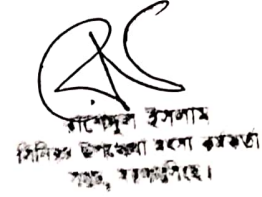 রাশেদুল ইসলাম
সিনিয়র উপজেলা মৎস্য কর্মকর্তা
সদর, ময়মনসিংহ।